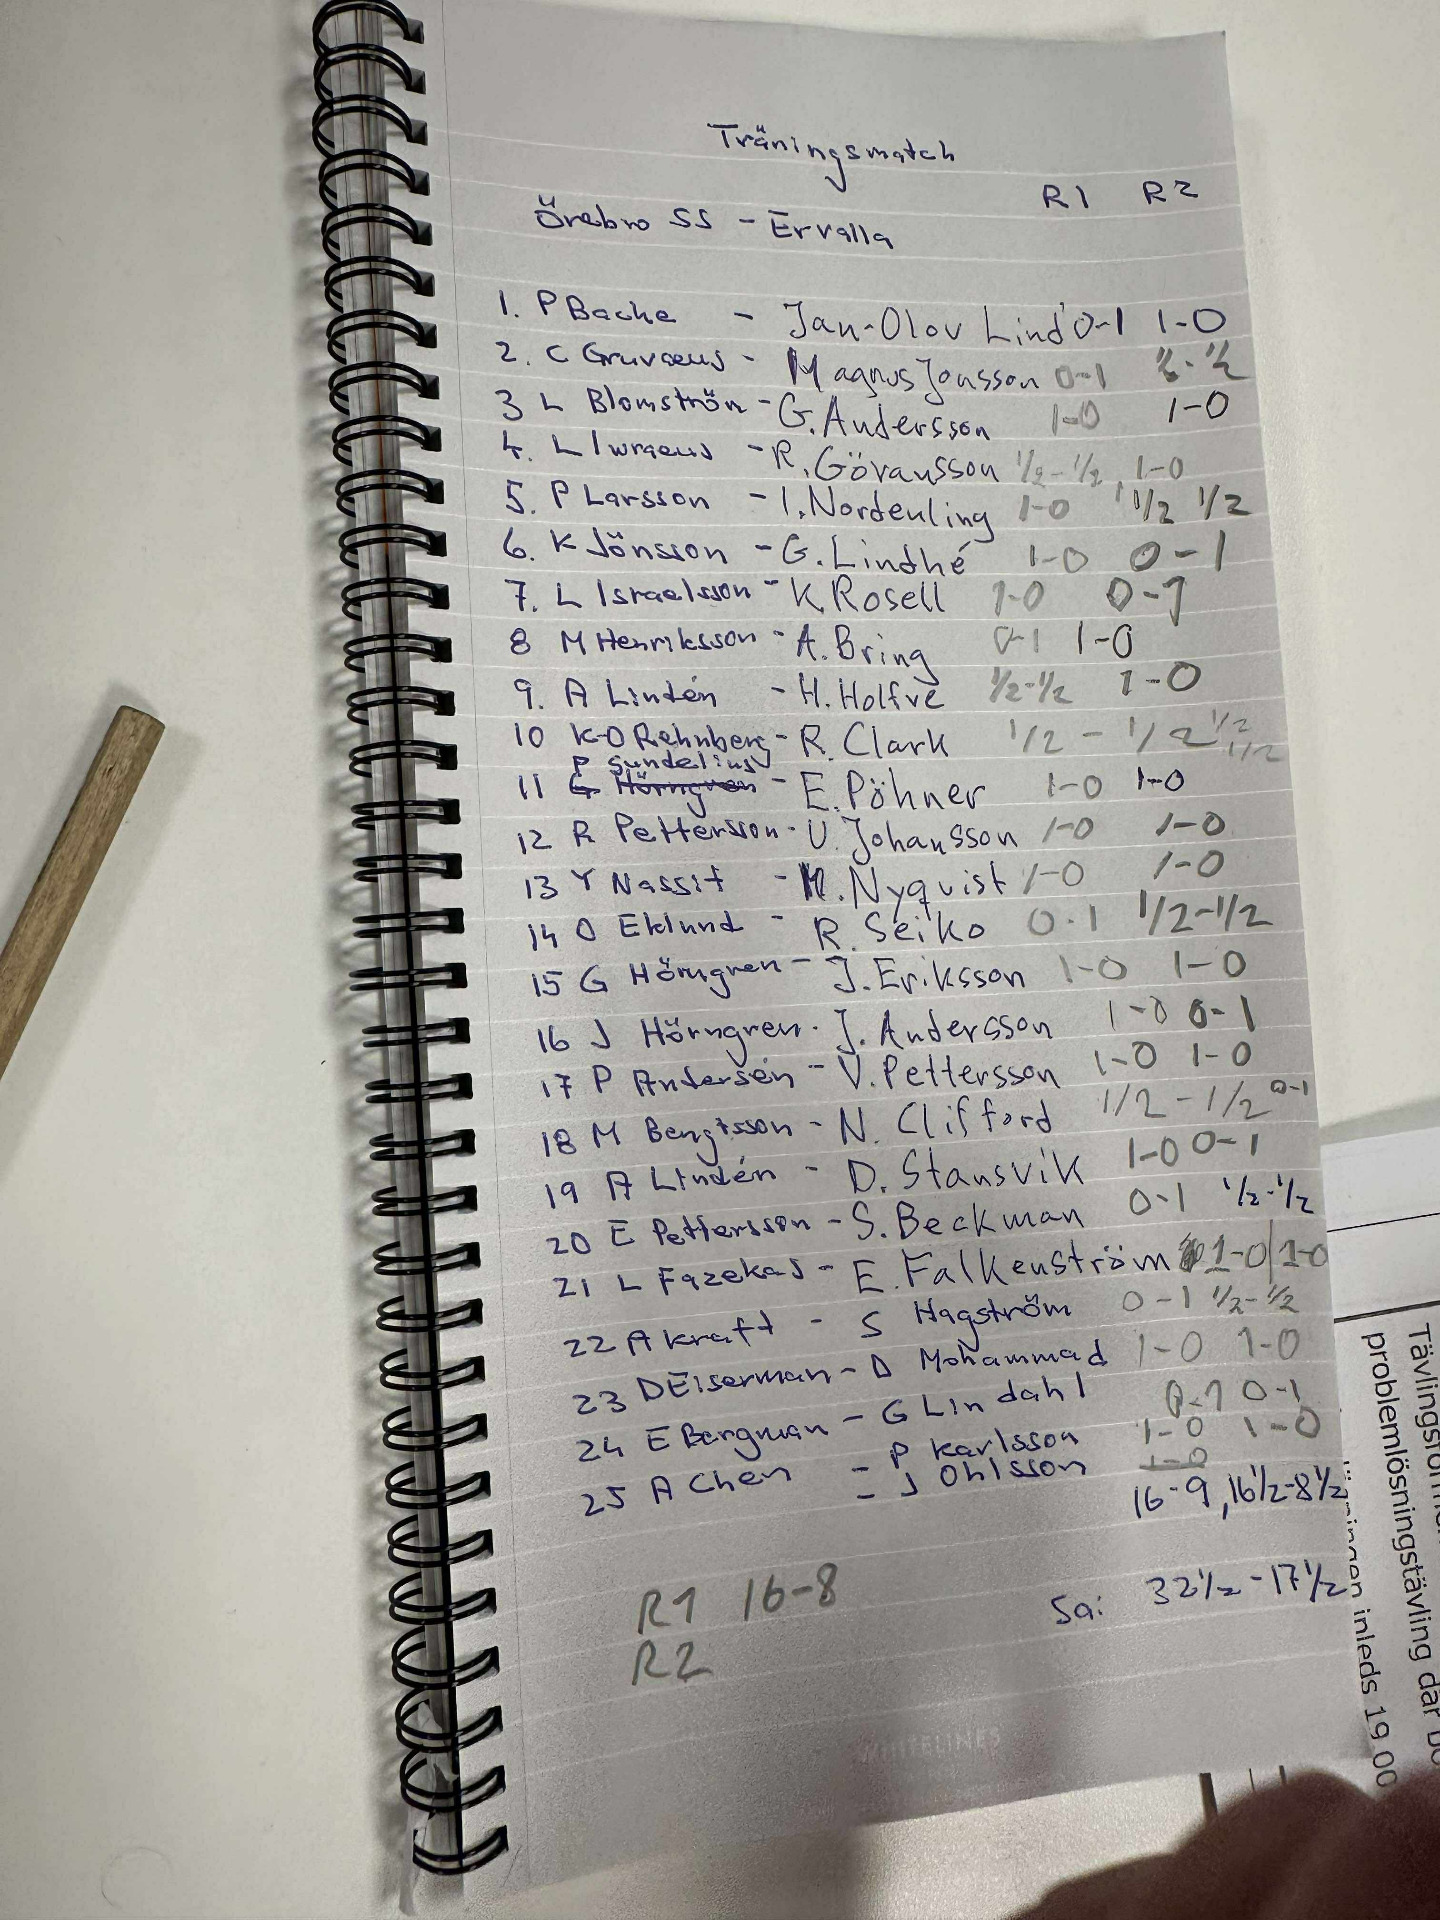 Träningsmatch
R1 R2
Örebro SS - Ervalla
1. P Backe - Jan-Olov Lind 0-1 1-0
2. C Gruvaeus - Magnus Jonsson 0-1 ½-½
3 L Blomström - G. Andersson 1-0 1-0
4. L Iwraeus - R. Göransson ½-½ 1-0
5. P Larsson - I. Nordenling 1-0 1/2 1/2
6. K Jönsson - G. Lindhé 1-0 0-1
7. L Israelsson - K. Rosell 1-0 0-1
8 M Henriksson - A. Bring 0-1 1-0
9. A Lindén - H. Holfve ½-½ 1-0
10 K-O Rehnberg - R. Clark 1/2 - 1/2 1/2 1/2
P Sundelius
11 G Hörngren - E. Pöhner 1-0 1-0
12 R Pettersson - U. Johansson 1-0 1-0
13 Y Nassif - M. Nyquist 1-0 1-0
14 O Eklund - R. Seiko 0-1 1/2-1/2
15 G Hörngren - J. Eriksson 1-0 1-0
16 J Hörngren - J. Andersson 1-0 0-1
17 P Andersén - V. Pettersson 1-0 1-0
18 M Bengtsson - N. Clifford 1/2 - 1/2 0-1
19 A Lindén - D. Stansvik 1-0 0-1
20 E Pettersson - S. Beckman 0-1 ½-½
21 L Fazekas - E. Falkenström 1-0 1-0
22 A Kraft - S Hagström 0-1 ½-½
23 D Eiserman - D Mohammad 1-0 1-0
24 E Bergman - G Lindahl 0-1 0-1
25 A Chen - P Karlsson 1-0 1-0
- J Ohlsson 1-0
16-9, 16½-8½
R1 16-8
Sa: 32½-17½
R2
problemlösningstävling där
inleds 19 00